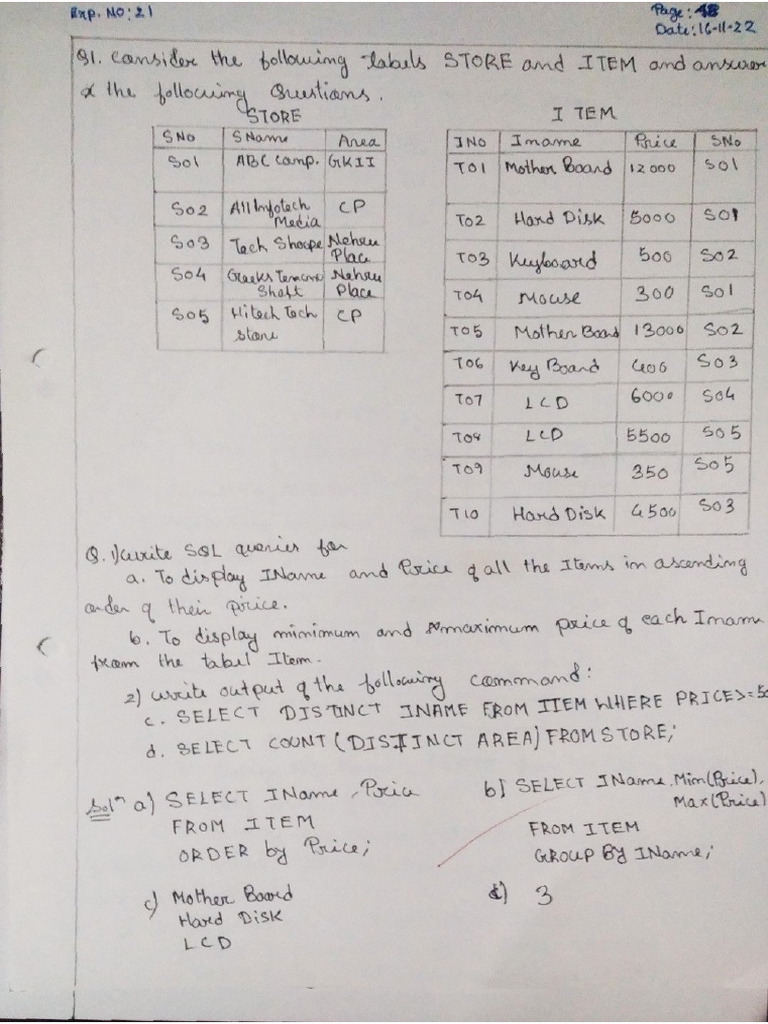 Exp. NO: 21
Page: 48
Date: 16-11-22
Q1. Consider the following tabels STORE and ITEM and answer
the following Questions.
STORE
SNO SName Area
S01 ABC Comp. GKII
S02 All Infotech Media CP
S03 Tech Shoope Nehru Place
S04 Geeks Shaft Nehru Place
S05 Hitech Tech store CP
ITEM
INO Iname Price SNo
T01 Mother Board 12000 S01
T02 Hard Disk 5000 S01
T03 Keyboard 500 S02
T04 Mouse 300 S01
T05 Mother Board 13000 S02
T06 Key Board 400 S03
T07 LCD 6000 S04
T08 LCD 5500 S05
T09 Mouse 350 S05
T10 Hard Disk 4500 S03
Q. 1) write SQL queries for
a. To display IName and Price of all the Items in ascending
order of their price.
b. To display minimum and maximum price of each Iname
from the tabel Item.
2) write output of the following command:
c. SELECT DISTINCT INAME FROM ITEM WHERE PRICE>=50
d. SELECT COUNT (DISTINCT AREA) FROM STORE;
Solⁿ a) SELECT IName, Price
FROM ITEM
ORDER by Price;
b) SELECT IName, Min(Price),
Max(Price)
FROM ITEM
GROUP BY IName;
c) Mother Board
Hard Disk
LCD
d) 3